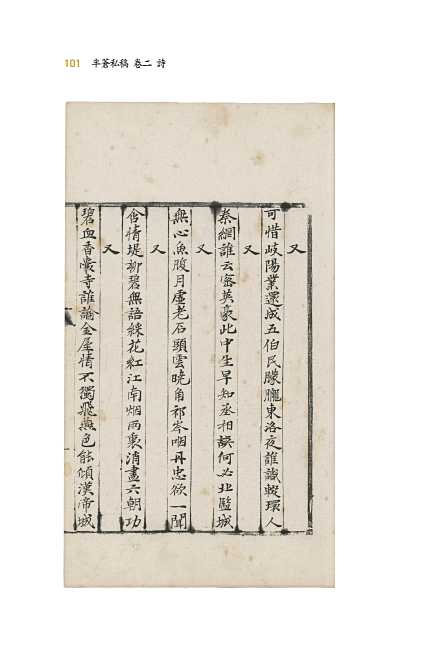 101 半蒼私稿 卷二 詩
又
可惜岐陽業還成五伯民朦朧東洛夜誰識轍環人
又
秦網誰云密英豪此中生早知丞相誤何必北監城
又
無心魚腹月虛老石頭雲曉角祁岑咽丹忠欲一聞
又
含情堤柳碧無語綵花紅江南烟雨裏消盡六朝功
又
碧血香裳寺誰論金屋情不獨飛燕色能傾漢帝城